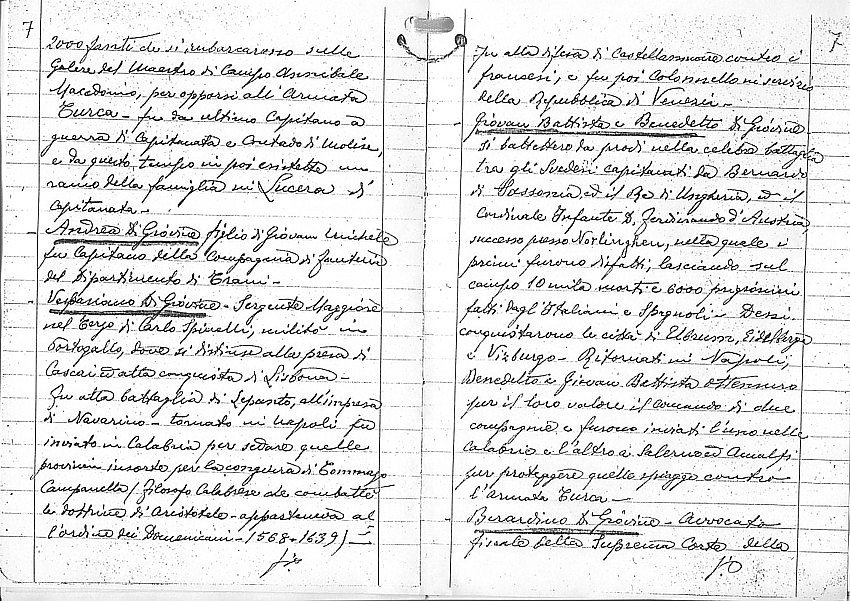 7
2000 fanti che si imbarcarono sulle
Galere del Maestro di Campo Annibale
Macedonio, per opporsi all'Armata
Turca - fu da ultimo Capitano a
guerra di Capitanata e Contado di Molise,
e da questo tempo in poi esistette un
ramo della famiglia in Lucera di
Capitanata -
Andrea Di Giovine figlio di Giovan Michele
fu Capitano della Compagnia di fanteria
del Dipartimento di Trani -
Vespasiano Di Giovine - Sergente Maggiore
nel Terzo di Carlo Spinelli, militò in
Portogallo, dove si distinse alla presa di
Cascai ed alla conquista di Lisbona -
Fu alla battaglia di Lepanto, all'impresa
di Navarino - tornato in Napoli fu
inviato in Calabria per sedare quelle
provincie insorte per la congiura di Tommaso
Campanella (Filosofo Calabrese che combattè
le dottrine di Aristotele - apparteneva al
l'ordine dei Domenicani - 1568-1639) -
7
Fu alla difesa di Castellammare contro i
francesi, e fu poi Colonnello ai servizi
della Repubblica di Venezia -
Giovan Battista e Benedetto Di Giovine
si battettero da prodi nella celebre battaglia
tra gli Svedesi capitanati da Bernardo
di Sassonia, ed il Re di Ungheria, ed il
Cardinale Infante D. Ferdinando d'Austria,
successo presso Norlinghen, nella quale i
primi furono disfatti, lasciando sul
campo 10 mila morti e 6000 prigionieri
fatti dagl'Italiani e Spagnoli - Dessi
conquistarono le città di Elbrum,
e Virburgo - Ritornati in Napoli,
Benedetto e Giovan Battista ottennero
per il loro valore il comando di due
compagnie e furono inviati l'uno nelle
Calabrie e l'altro a Salerno ed Amalfi
per proteggere quelle spiagge contro
l'Armata Turca -
Berardino Di Giovine - Avvocato
fiscale della Suprema Corte della